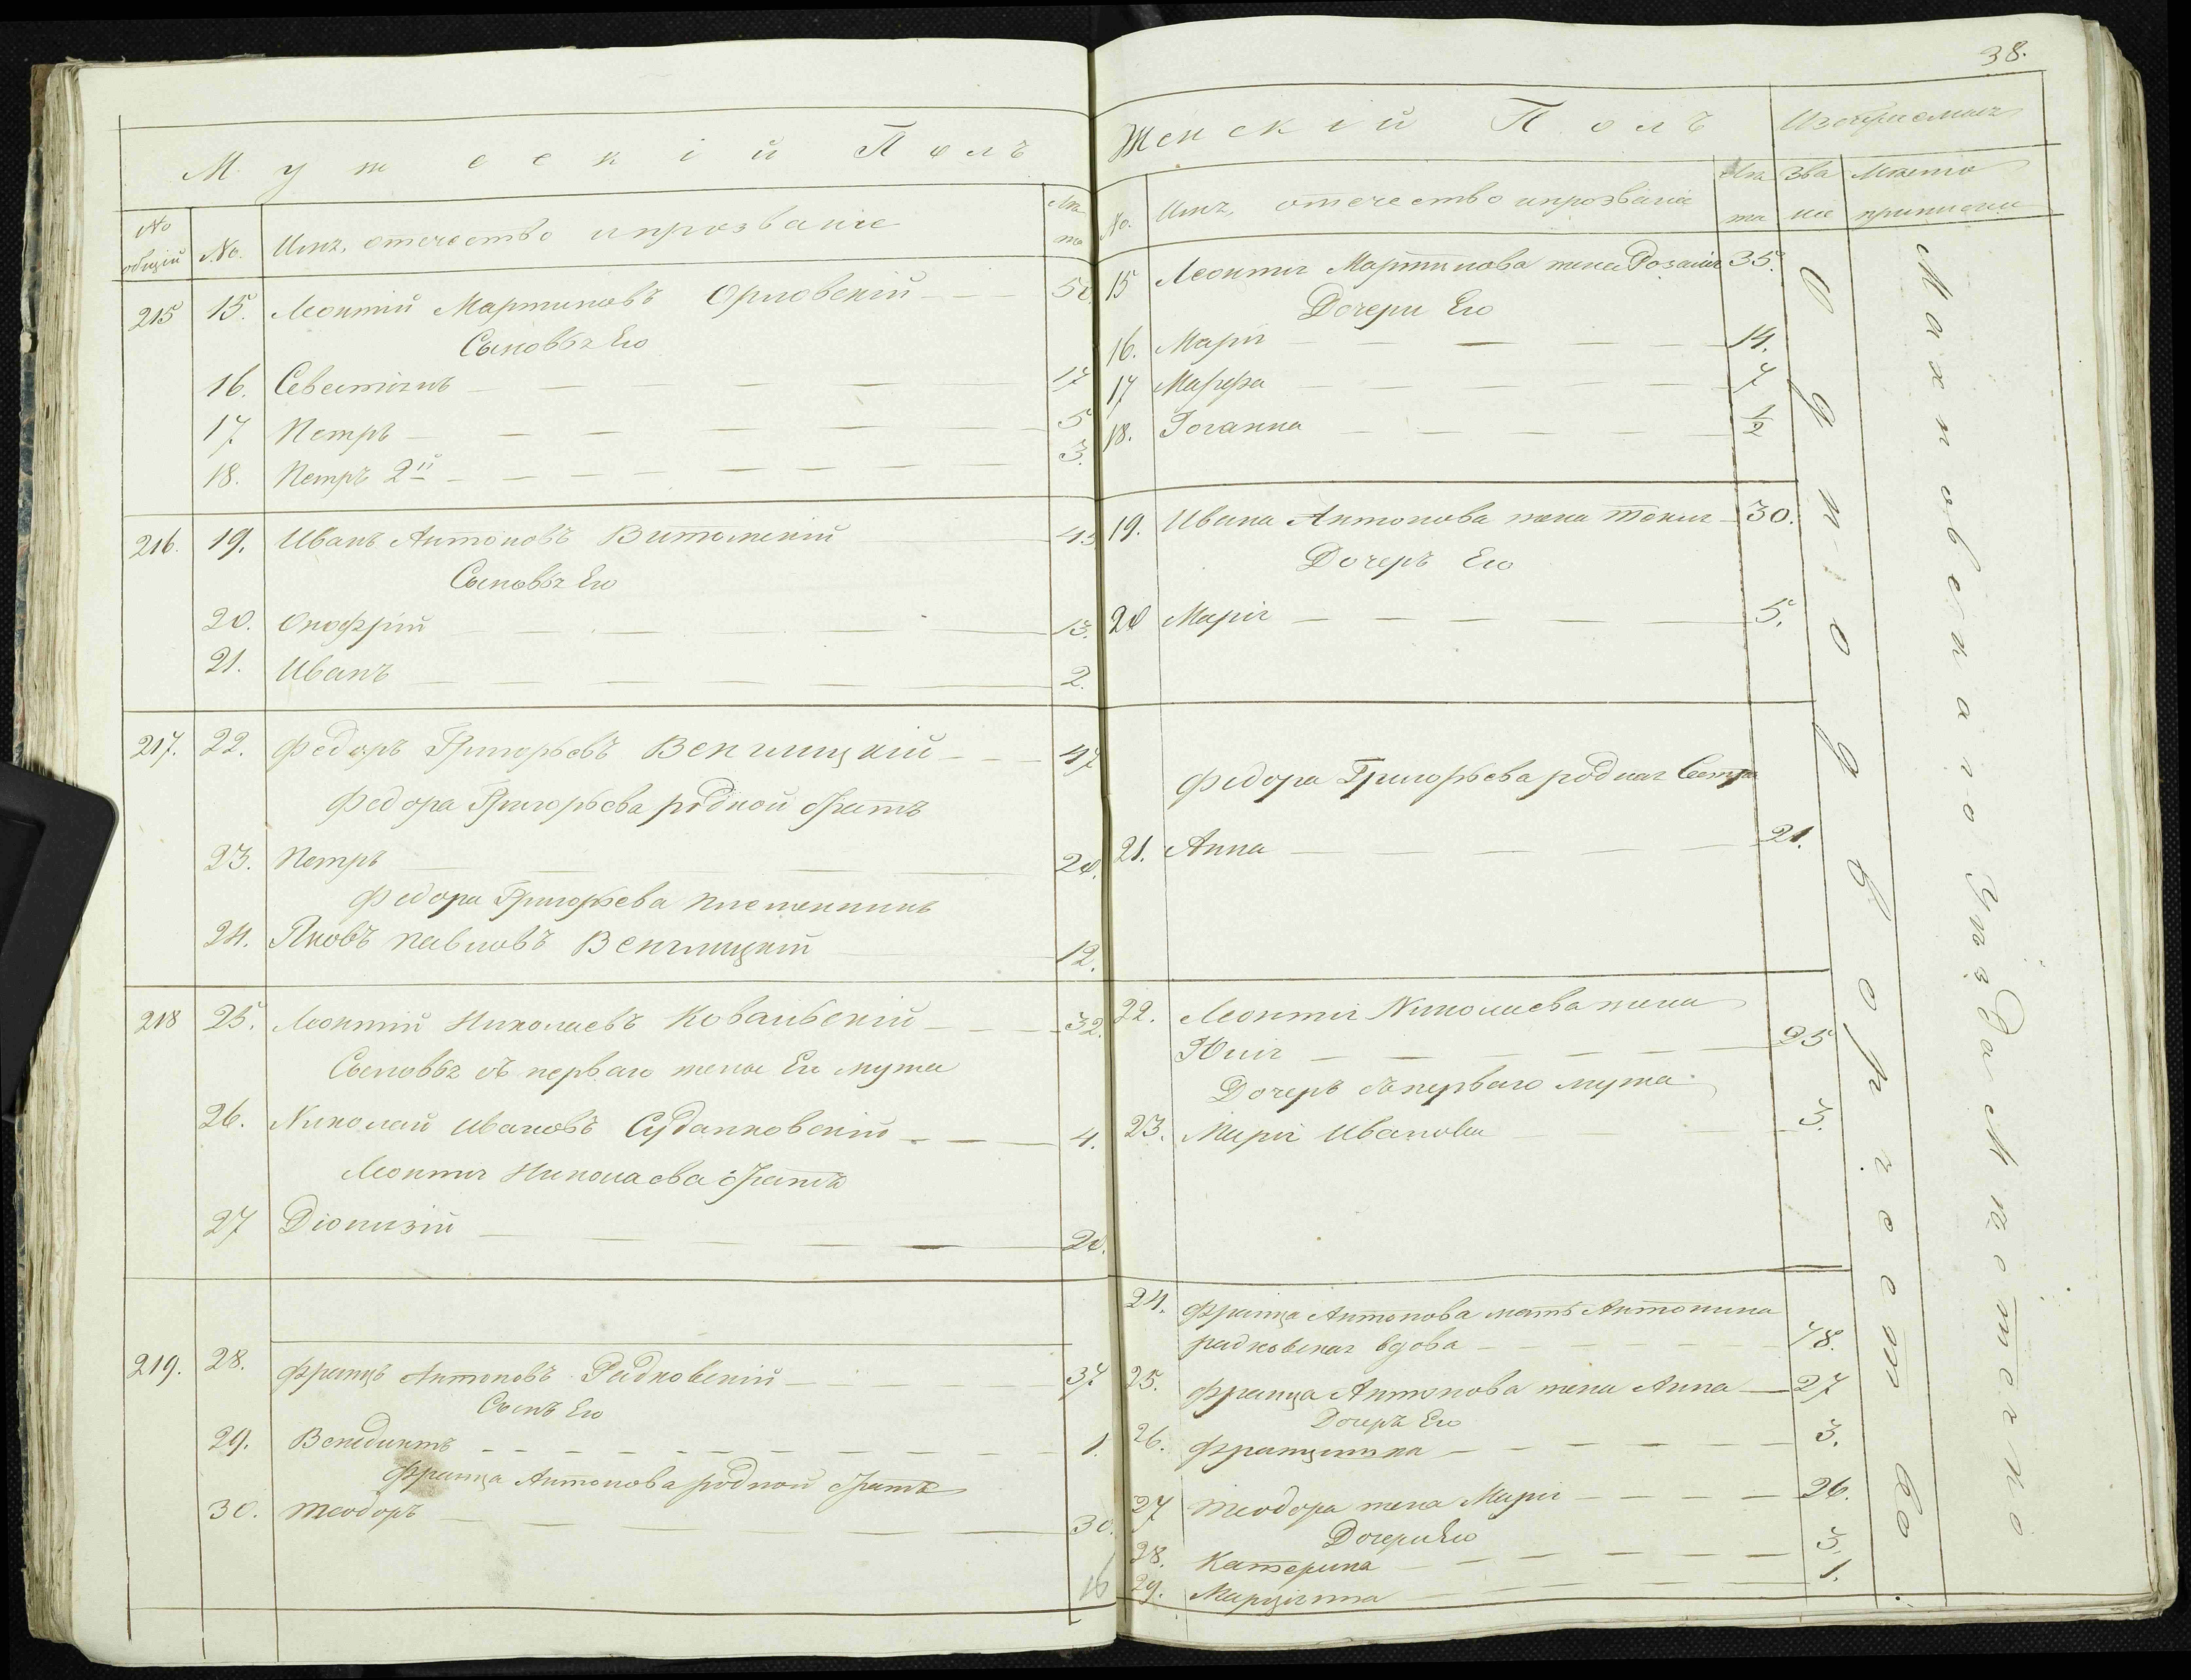 38.
Мужескій Полъ
№ общій
№.
Имя, отечество и прозваніе
Лѣта
215 15. Леонтій Мартиновъ Орловскій 50.
Сыновья Его
16. Севастіянъ 17
17. Петръ 5
18. Петръ 2й 3.
216. 19. Иванъ Антоновъ 43
Сыновья Его
20. Онофрій 13.
21. Иванъ 2.
217. 22. Федоръ Григорьевъ Венглицкій 47
Федора Григорьева родной братъ
23. Петръ 20.
Федора Григорьева племенникъ
24. Яковъ Павловъ Венглицкій 12.
218 25. Леонтій Николаевъ Ковальскій 32.
Сыновья съ перваго жены Его мужа
26. Николай Ивановъ Судаковскій 4.
Леонтія Николаева братъ
27 Діонизій 20.
219. 28. Францъ Антоновъ Радковскій 37.
Сынъ Его
29. Венедиктъ 1.
Франца Антонова родной братъ
30. Теодоръ 30.
16
Женскій Полъ
№.
Имя, отечество и прозваніе
Лѣта
Званіе
Мѣсто приписки
15 Леонтія Мартинова жена Розалія 35.
Дочери Его
16. Марія 14.
17 Марфа 7
18. Іоганна 1/2
19. Ивана Антонова жена Текля 30.
Дочеръ Его
20 Марія 5.
Федора Григорьева родная Сестра
21. Анна 21.
22. Леонтія Николаева жена
Юлія 25
Дочеръ съ перваго мужа
23. Марія Иванова 3.
24. Франца Антонова мать Антонина
радковская вдова 78.
25. Франца Антонова жена Анна 27
Дочеръ Его
26. Францишка 3.
27 Теодора жена Марія 26.
Дочери Его
28. Катерина 3.
29. Марціянна 1.
Однодворчество
Махновскаго Уѣзда